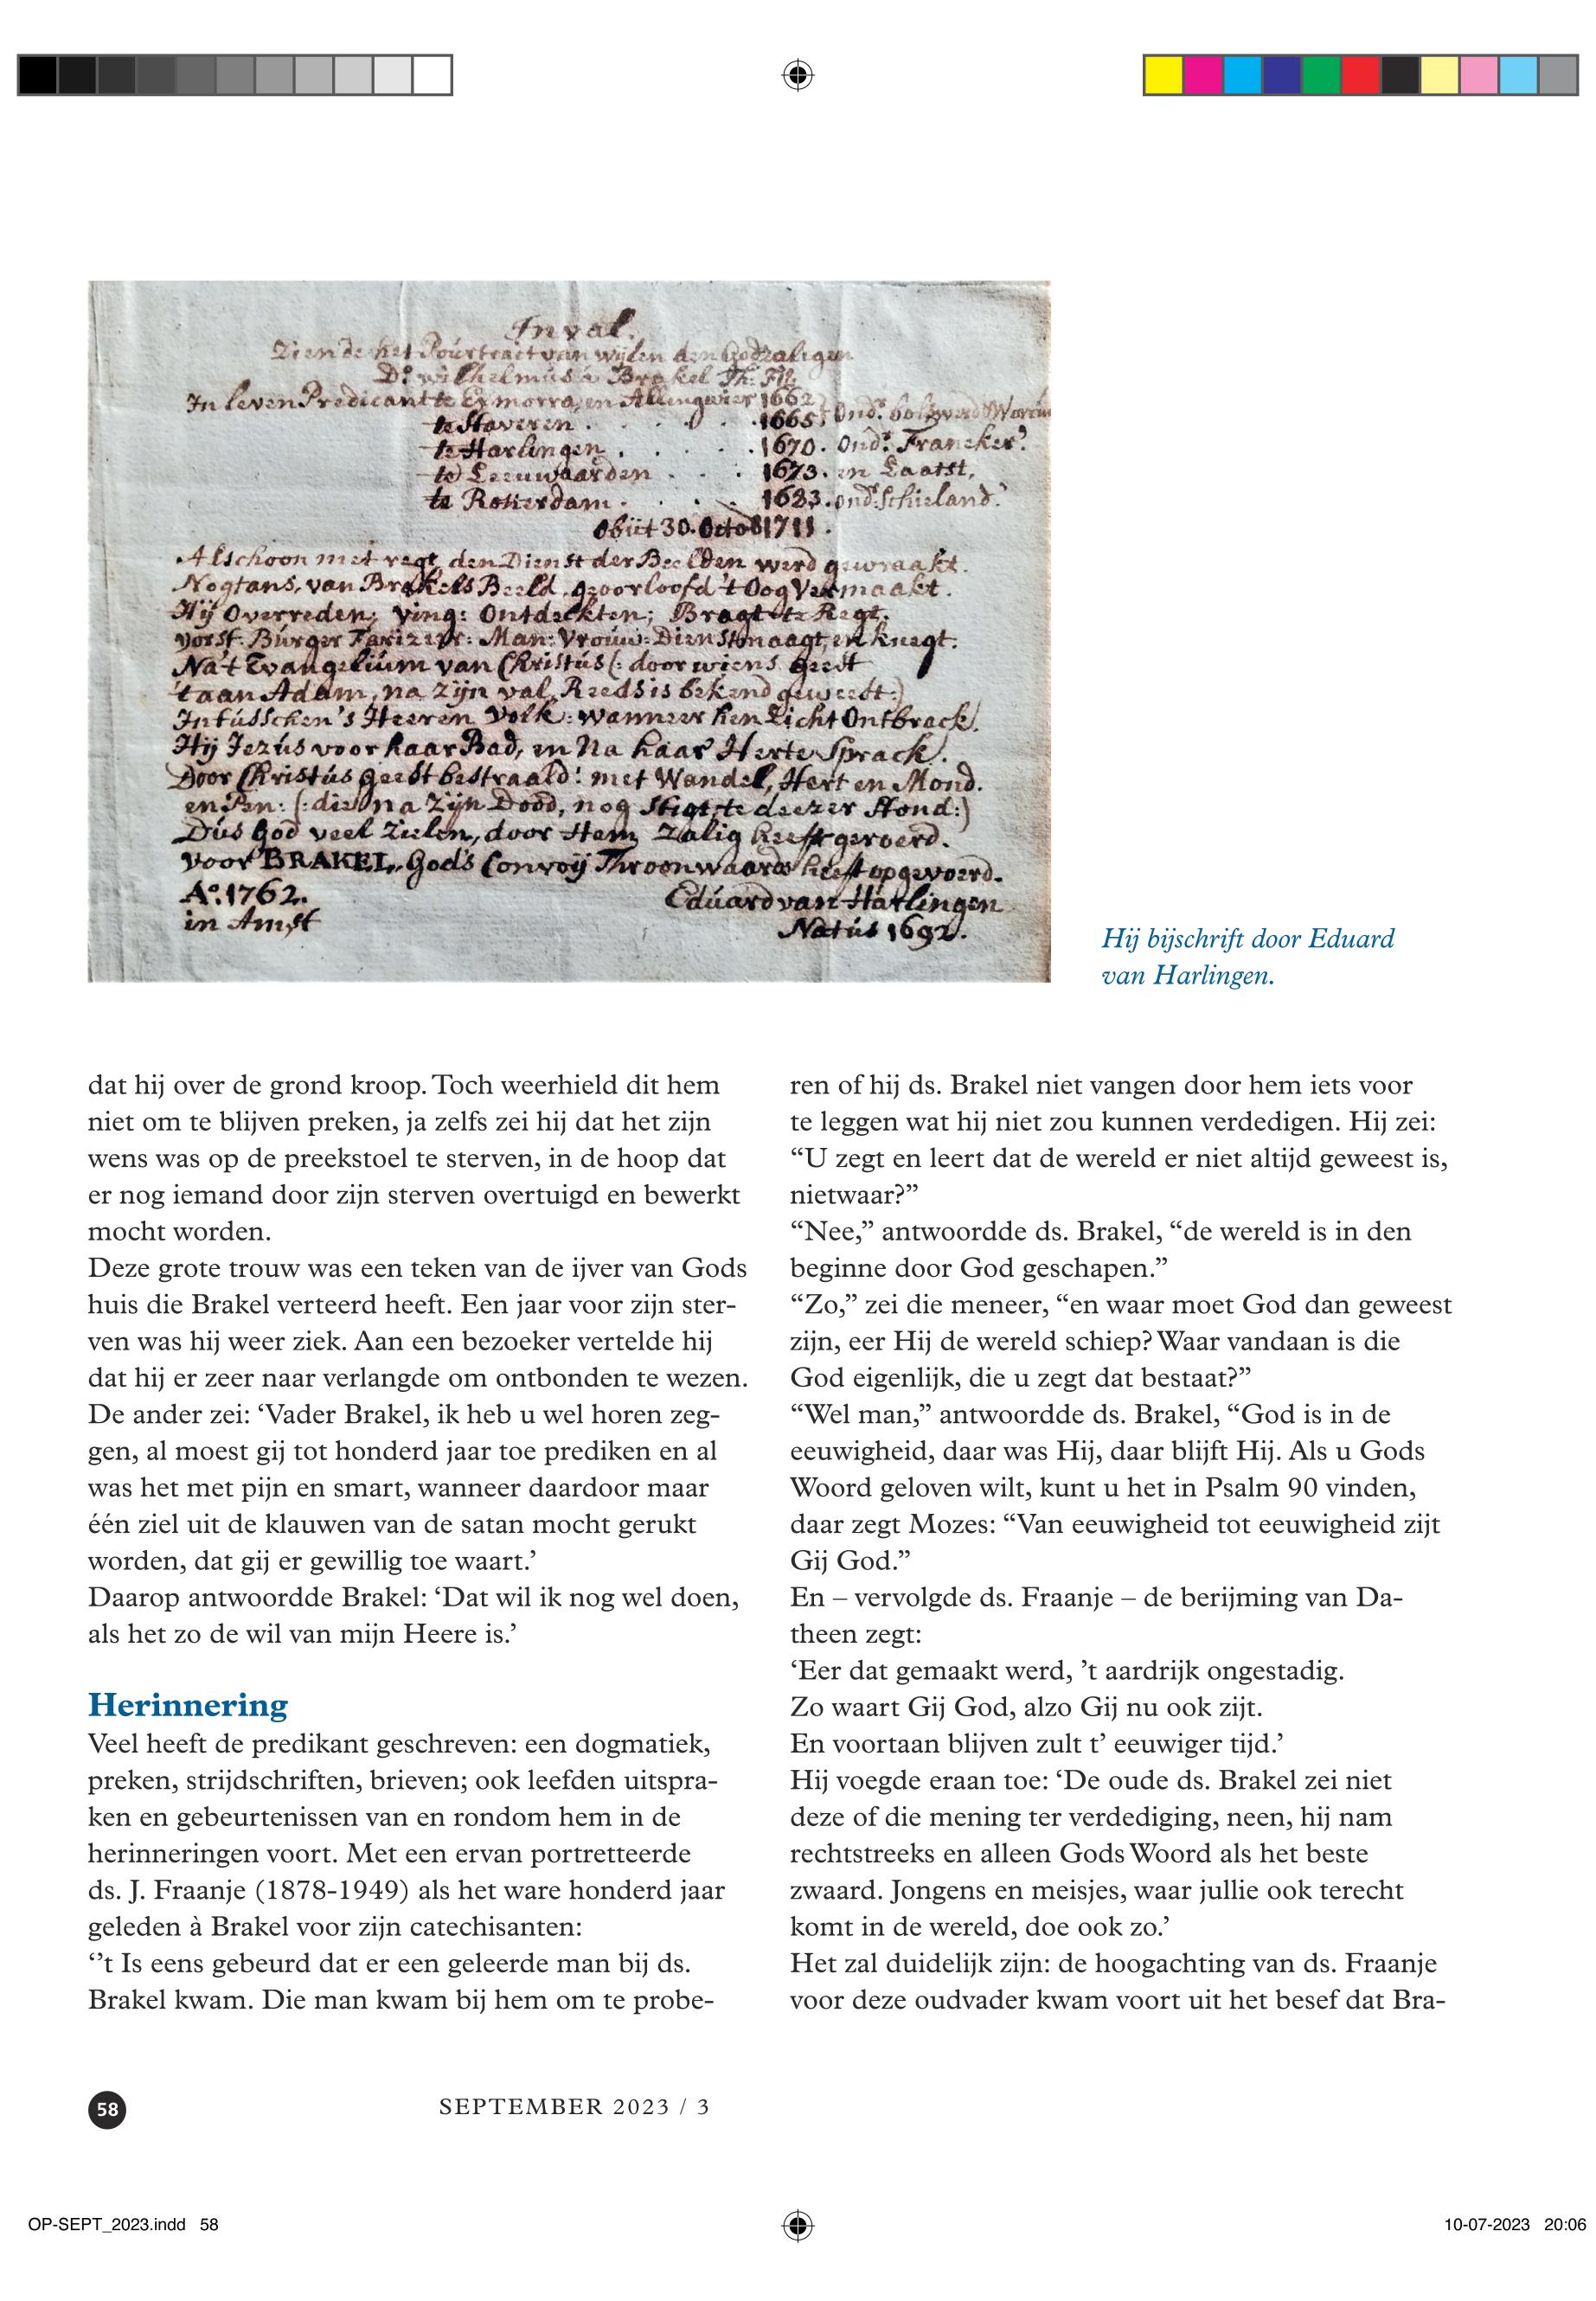 Inval.
Ziende het Poúrtrait van wijlen den Godzaligen
D: Wilhelmús à Brakel Th: Fil:
In leven Predicant te Exmorra, en Allingwier 1662
te Staveren . . . . . 1665
te Harlingen . . . . . 1670. Ond: Franeker.
te Leeuwaarden . . . 1673. en Laatst,
te Rotterdam . . . 1683. ond: Schieland.
Obiit 30. Octo 1711.
Alschoon met regt, den Dienst der Beelden werd gewraakt.
Nogtans, van Brakels Beeld, geoorloofd 't Oog Vermaakt.
Hij Overreden; Ving: Ontdekten; Bragt te Regt;
Vorst: Búrger Farizeer: Man: Vroúw: Dienstmaagt, en knegt.
Na't Evangeliúm van Christús (: door wiens geest
't aan Adam, na zijn val, Reeds is bekend geweest:)
Intússchen 's Heeren Volk: wanneer hen Licht Ontbrack,
Hij Jezús voor haar Bad, en Na haar Herte Sprack.
Door Christús geest bestraald! met Wandel, Hert en Mond.
en Pen: (: die na Zijn Dood, nog Stigt, te deezer Stond:)
Dús God veel Zielen, door Hem Zalig heeft geroerd.
voor BRAKEL, God's Convoij Throonwaards heeft opgevoerd.
A°. 1762.
in Amst
Edúard van Harlingen
Natús 1692.
Hij bijschrift door Eduard
van Harlingen.
dat hij over de grond kroop. Toch weerhield dit hem
niet om te blijven preken, ja zelfs zei hij dat het zijn
wens was op de preekstoel te sterven, in de hoop dat
er nog iemand door zijn sterven overtuigd en bewerkt
mocht worden.
Deze grote trouw was een teken van de ijver van Gods
huis die Brakel verteerd heeft. Een jaar voor zijn ster-
ven was hij weer ziek. Aan een bezoeker vertelde hij
dat hij er zeer naar verlangde om ontbonden te wezen.
De ander zei: ‘Vader Brakel, ik heb u wel horen zeg-
gen, al moest gij tot honderd jaar toe prediken en al
was het met pijn en smart, wanneer daardoor maar
één ziel uit de klauwen van de satan mocht gerukt
worden, dat gij er gewillig toe waart.’
Daarop antwoordde Brakel: ‘Dat wil ik nog wel doen,
als het zo de wil van mijn Heere is.’
Herinnering
Veel heeft de predikant geschreven: een dogmatiek,
preken, strijdschriften, brieven; ook leefden uitspra-
ken en gebeurtenissen van en rondom hem in de
herinneringen voort. Met een ervan portretteerde
ds. J. Fraanje (1878-1949) als het ware honderd jaar
geleden à Brakel voor zijn catechisanten:
‘’t Is eens gebeurd dat er een geleerde man bij ds.
Brakel kwam. Die man kwam bij hem om te probe-
ren of hij ds. Brakel niet vangen door hem iets voor
te leggen wat hij niet zou kunnen verdedigen. Hij zei:
“U zegt en leert dat de wereld er niet altijd geweest is,
nietwaar?”
“Nee,” antwoordde ds. Brakel, “de wereld is in den
beginne door God geschapen.”
“Zo,” zei die meneer, “en waar moet God dan geweest
zijn, eer Hij de wereld schiep? Waar vandaan is die
God eigenlijk, die u zegt dat bestaat?”
“Wel man,” antwoordde ds. Brakel, “God is in de
eeuwigheid, daar was Hij, daar blijft Hij. Als u Gods
Woord geloven wilt, kunt u het in Psalm 90 vinden,
daar zegt Mozes: “Van eeuwigheid tot eeuwigheid zijt
Gij God.”
En – vervolgde ds. Fraanje – de berijming van Da-
theen zegt:
‘Eer dat gemaakt werd, ’t aardrijk ongestadig.
Zo waart Gij God, alzo Gij nu ook zijt.
En voortaan blijven zult t’ eeuwiger tijd.’
Hij voegde eraan toe: ‘De oude ds. Brakel zei niet
deze of die mening ter verdediging, neen, hij nam
rechtstreeks en alleen Gods Woord als het beste
zwaard. Jongens en meisjes, waar jullie ook terecht
komt in de wereld, doe ook zo.’
Het zal duidelijk zijn: de hoogachting van ds. Fraanje
voor deze oudvader kwam voort uit het besef dat Bra-
58
SEPTEMBER 2023 / 3
OP-SEPT_2023.indd 58
10-07-2023 20:06